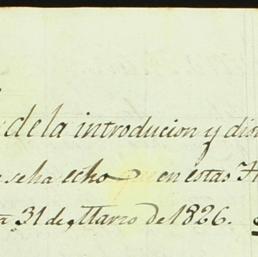 de la introducion y dis
se ha echo en estas
31 de Marzo de 1826.